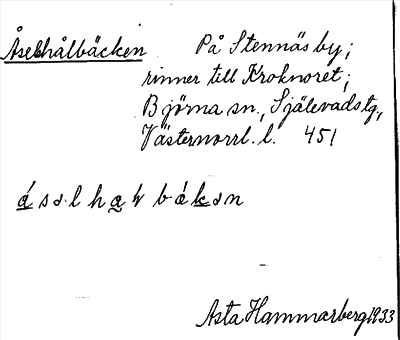 Åselhålbäcken På Stennäs by;
rinner till Kroknoret;
Björna sn., Själevads tg,
Västernorrl. l. 451
Asta Hammarberg 1933